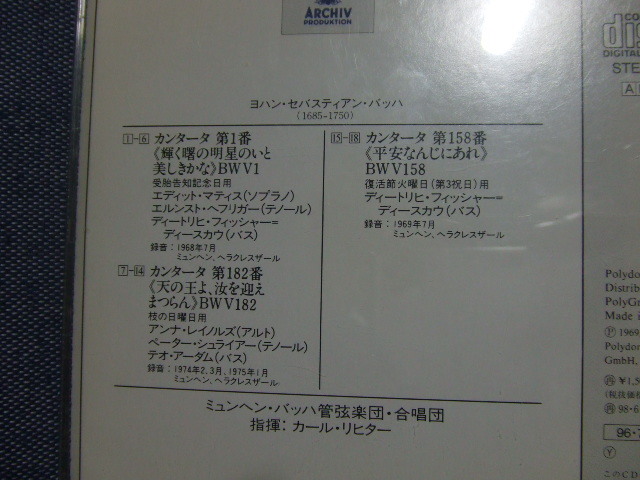 ARCHIV
PRODUKTION
ヨハン・セバスティアン・バッハ
(1685-1750)
1-6 カンタータ 第1番
《輝く曙の明星のいと
美しきかな》BWV1
受胎告知記念日用
エディット・マティス(ソプラノ)
エルンスト・ヘフリガー(テノール)
ディートリヒ・フィッシャー=
ディースカウ(バス)
録音:1968年7月
ミュンヘン、ヘラクレスザール
7-14 カンタータ 第182番
《天の王よ、汝を迎え
まつらん》BWV182
枝の日曜日用
アンナ・レイノルズ(アルト)
ペーター・シュライアー(テノール)
テオ・アーダム(バス)
録音:1974年2、3月、1975年1月
ミュンヘン、ヘラクレスザール
15-18 カンタータ 第158番
《平安なんじにあれ》
BWV158
復活節火曜日(第3祝日)用
ディートリヒ・フィッシャー=
ディースカウ(バス)
録音:1969年7月
ミュンヘン、ヘラクレスザール
ミュンヘン・バッハ管弦楽団・合唱団
指揮:カール・リヒター
DIGITAL
STE
Polydo
Distrib
PolyGr
Made i
Ⓟ 1969
Polydor
GmbH,
¥1,5
(税抜価格
98・6
96・7
Ⓨ
このCD